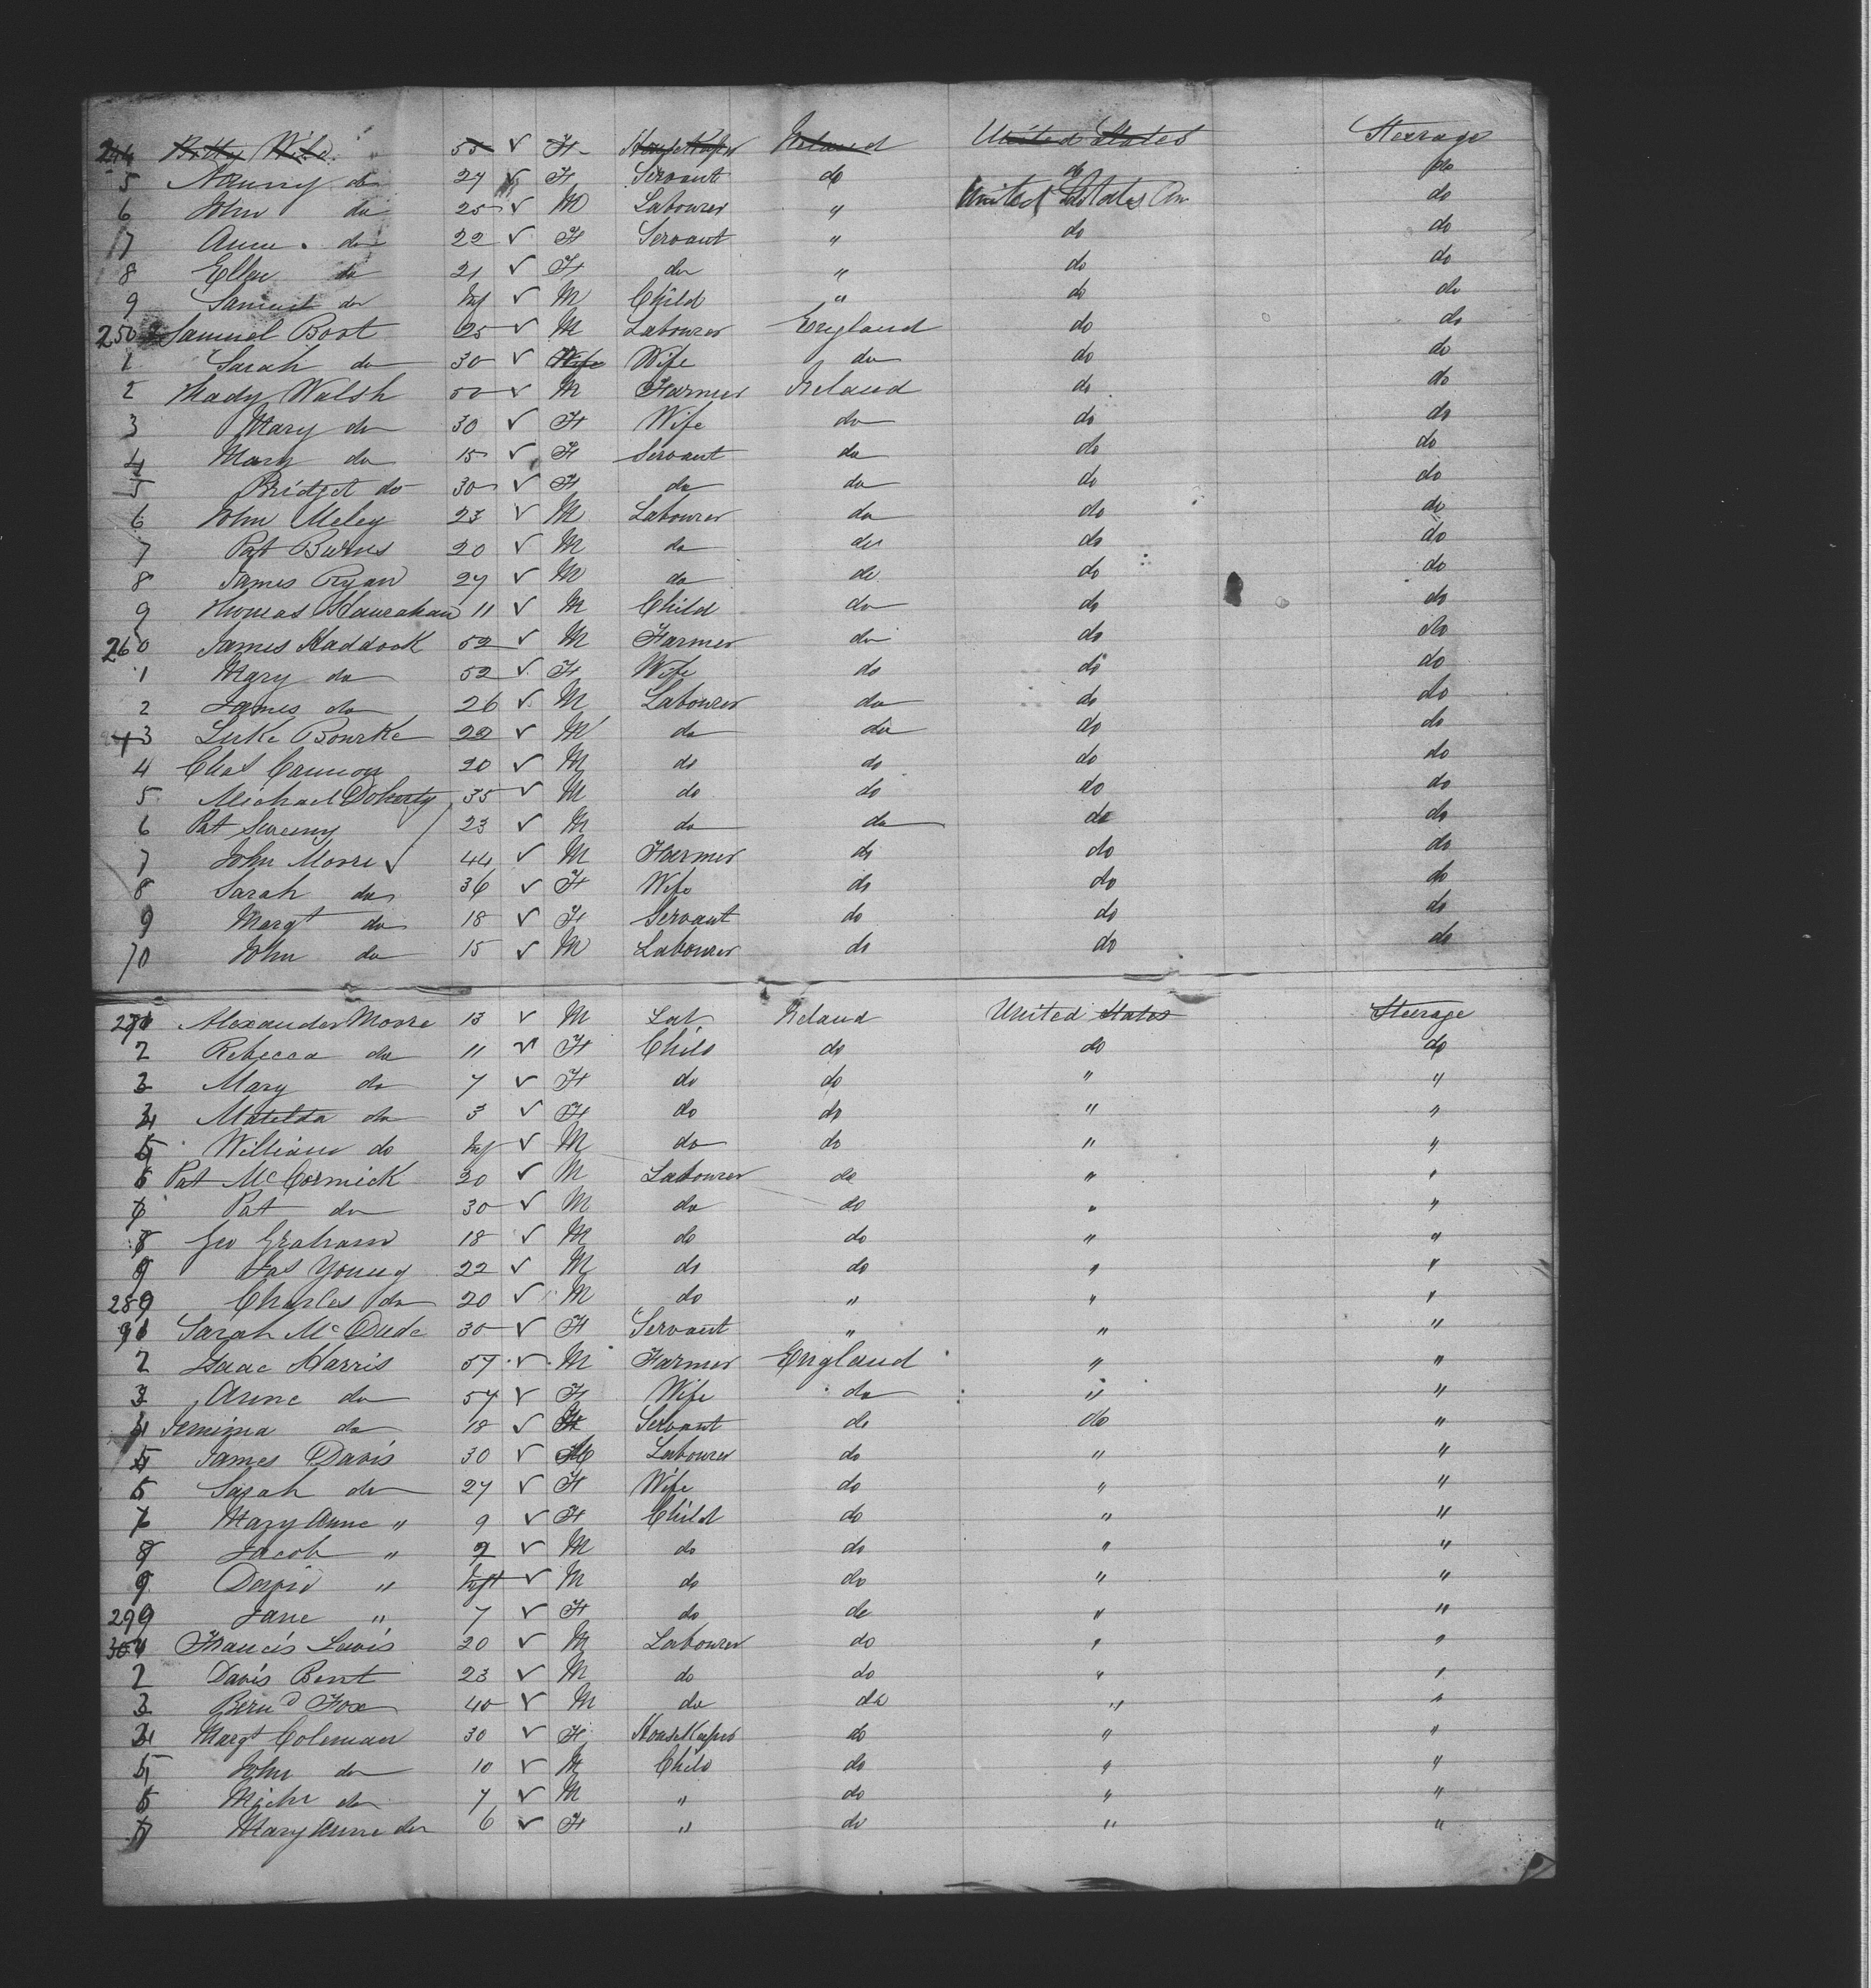 244 Betty Wild 55 ✓ F HouseKeeper Ireland United States Steerage
5 Nanny do 27 ✓ F Servant do do do
6 John do 25 ✓ M Labourer " United States Am do
7 Anne do 22 ✓ F Servant " do do
8 Ellen do 21 ✓ F do " do do
9 Samuel do Inf ✓ M Child " do do
250 Samuel Boot 25 ✓ M Labourer England do do
1 Sarah do 30 ✓ Wife Wife do do do
2 Thady Walsh 50 ✓ M Farmer Ireland do do
3 Mary do 30 ✓ F Wife do do do
4 Mary do 15 ✓ F Servant do do do
5 Bridget do 30 ✓ F do do do do
6 John Meley 23 ✓ M Labourer do do do
7 Pat Burns 20 ✓ M do do do do
8 James Ryan 27 ✓ M do do do do
9 Thomas Hanrahan 11 ✓ M Child do do do
260 James Haddock 52 ✓ M Farmer do do do
1 Mary do 52 ✓ F Wife do do do
2 James do 26 ✓ M Labourer do do do
3 Luke Bourke 22 ✓ M do do do do
4 Chas Cannon 20 ✓ M do do do do
5 Michael Doherty 35 ✓ M do do do do
6 Pat Sweeny 23 ✓ M do do do do
7 John Moore ✓ 44 ✓ M Farmer do do do
8 Sarah do 36 ✓ F Wife do do do
9 Margt do 18 ✓ F Servant do do do
70 John do 15 ✓ M Labourer do do do
271 Alexander Moore 13 ✓ M Lab Ireland United States Steerage
2 Rebecca do 11 ✓ F Child do do do
3 Mary do 7 ✓ F do do " "
4 Matilda do 3 ✓ F do do " "
5 William do Inf ✓ M do do " "
6 Pat McCormick 20 ✓ M Labourer do " "
7 Pat do 30 ✓ M do do " "
8 Geo Graham 18 ✓ M do do " "
9 Jas Young 22 ✓ M do do " "
280 Charles do 20 ✓ M do " " "
1 Sarah McDade 30 ✓ F Servant " " "
2 Isaac Harris 57 ✓ M Farmer England " "
3 Anne do 57 ✓ F Wife do " "
4 Jemima do 18 ✓ F Servant do do "
5 James Davis 30 ✓ M Labourer do " "
6 Sarah do 27 ✓ F Wife do " "
7 Mary Anne " 9 ✓ F Child do " "
8 Jacob " 2 ✓ M do do " "
9 David " Inft ✓ M do do " "
290 Jane " 7 ✓ F do do " "
Francis Lewis 20 ✓ M Labourer do " "
2 Davis Bent 23 ✓ M do do " "
3 Bernd Fox 40 ✓ M do do " "
4 Margt Coleman 30 ✓ F HouseKeeper do " "
5 John do 10 ✓ M Child do " "
6 Michl do 7 ✓ M " do " "
7 Mary Anne do 6 ✓ F " do " "